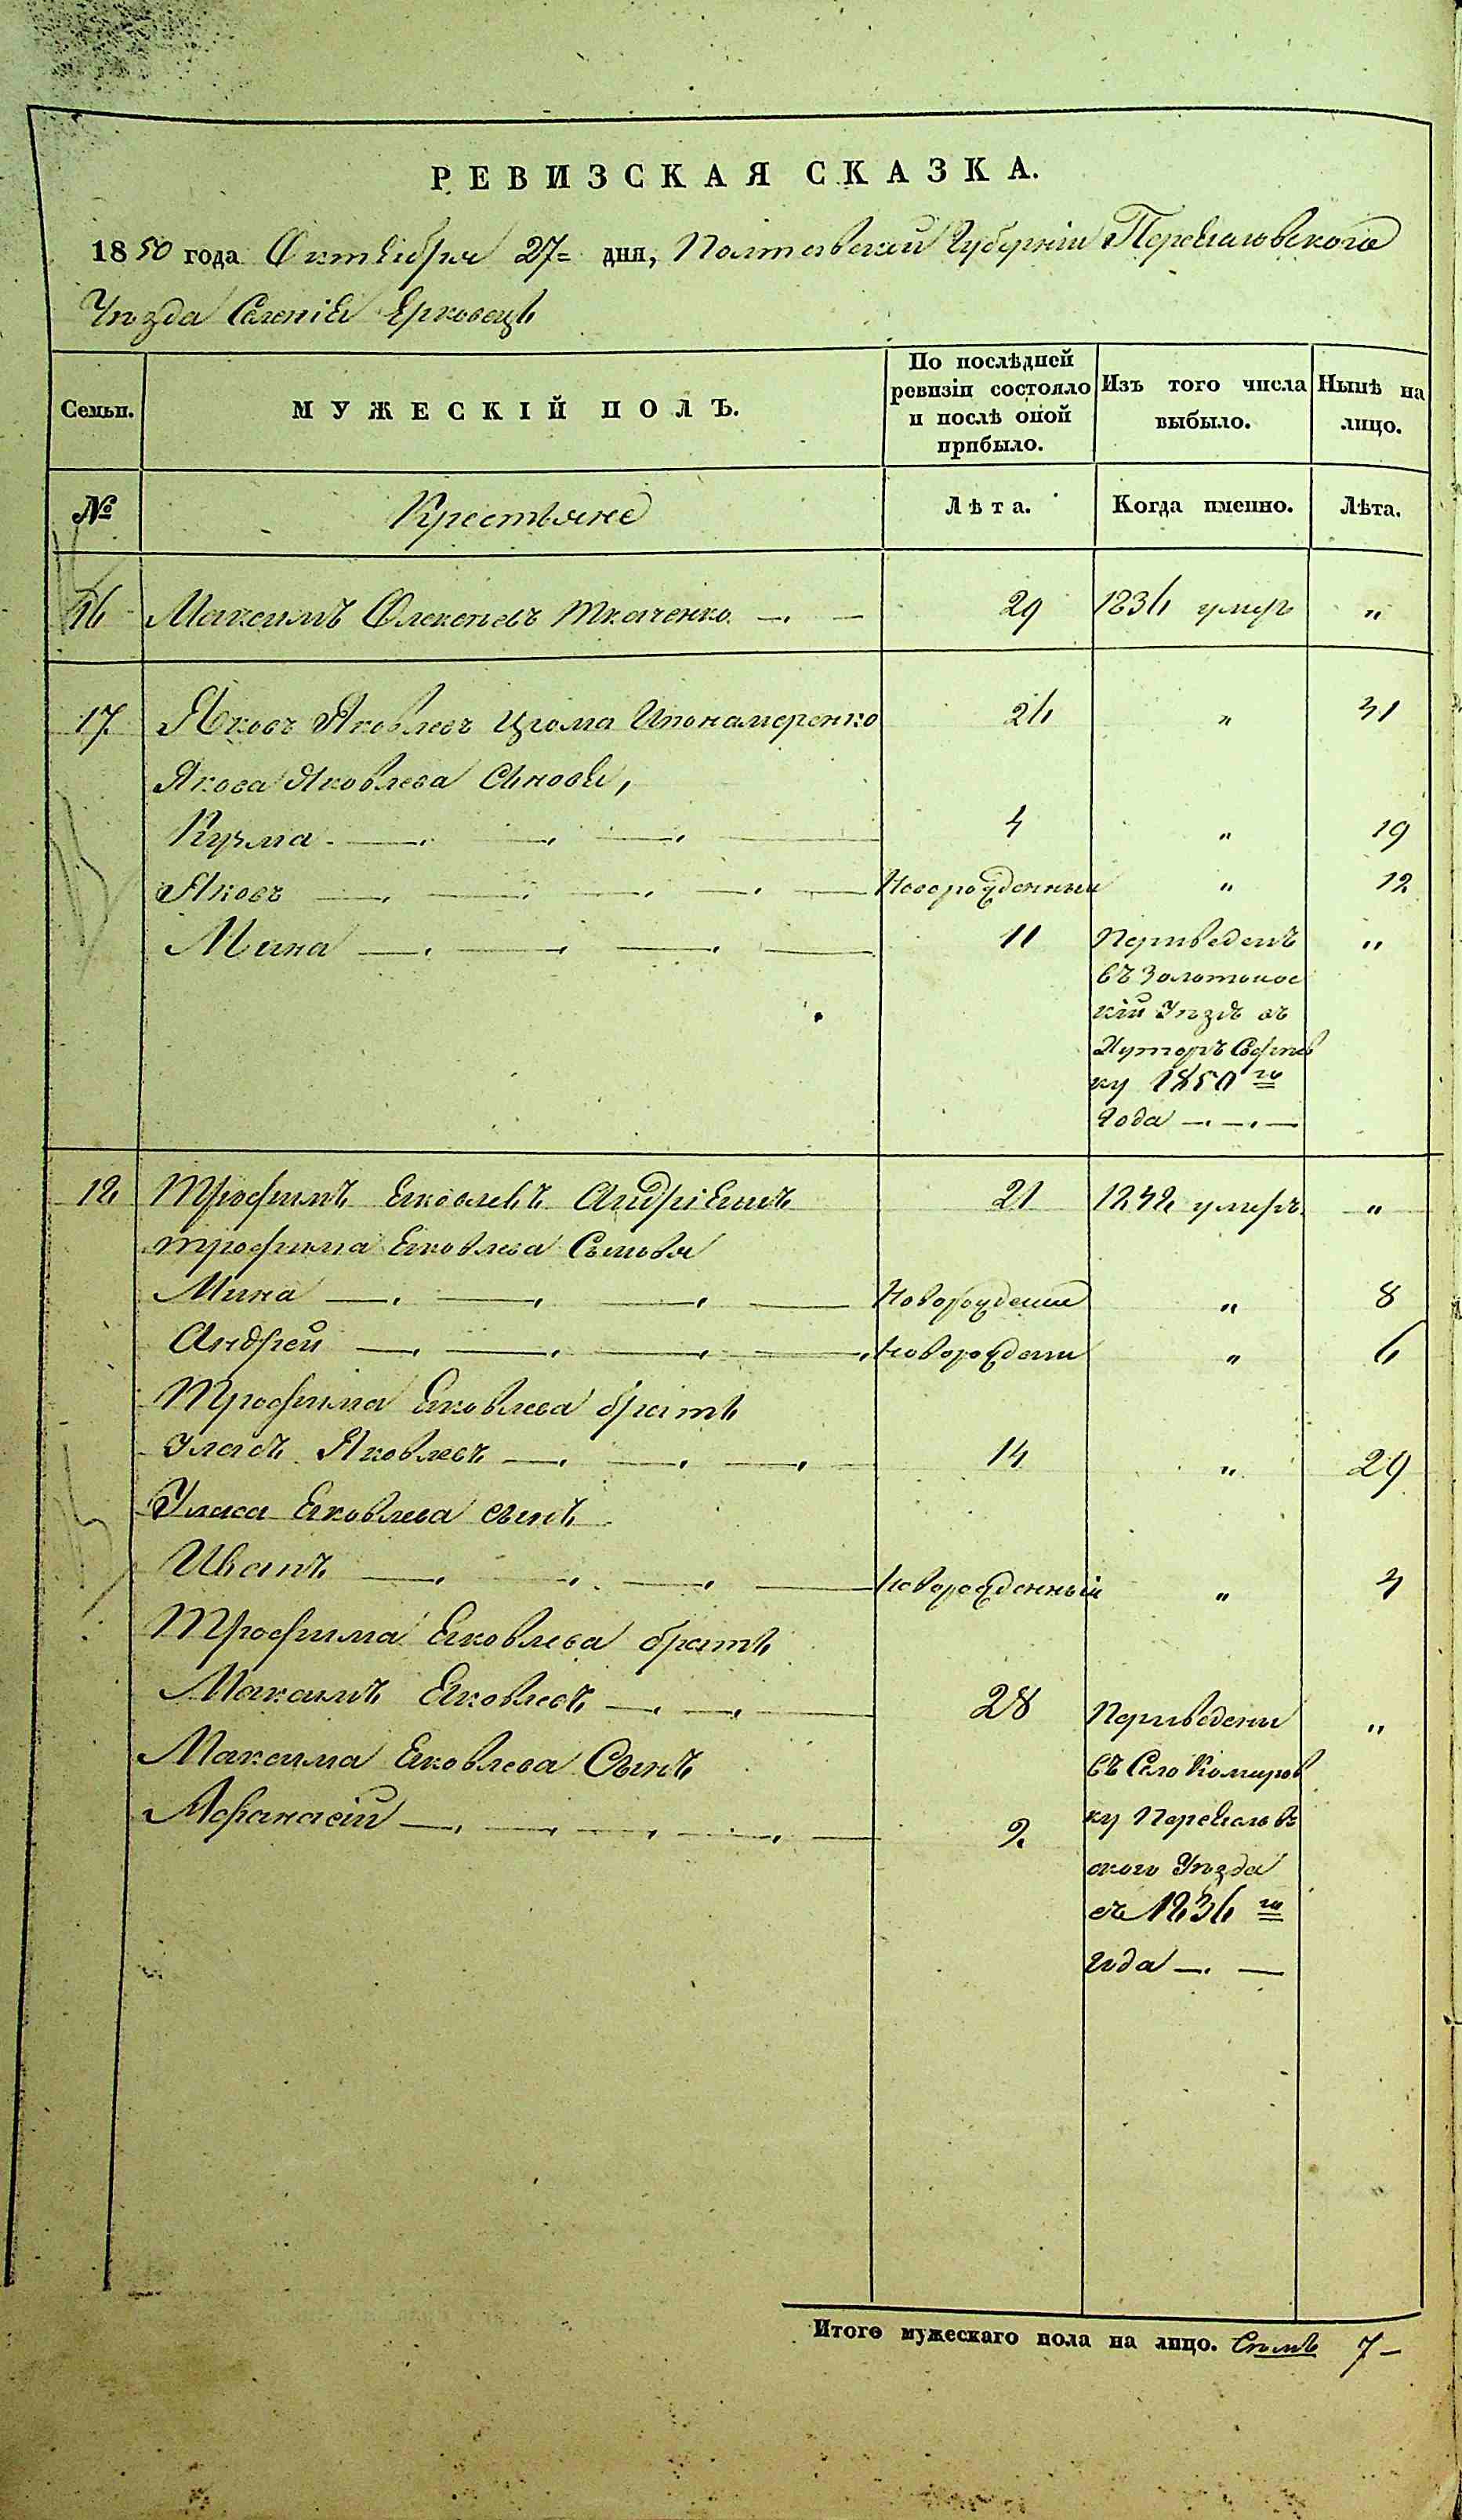 РЕВИЗСКАЯ СКАЗКА.
1850 года Октября 27= дня, Полтавской Губерніи Переяславского
Уѣзда Селенія Ерковецъ
Семьи.
МУЖЕСКІЙ ПОЛЪ.
По послѣдней ревизіи состояло и послѣ оной прибыло.
Изъ того числа выбыло.
Нынѣ на лицо.
№
Крестьяне
Лѣта.
Когда именно.
Лѣта.
16 Максимъ Олексѣевъ Ткаченко 29 1836 умеръ "
17. Яковъ Яковлевъ Цюма Ипонамаренко 26 " 41
Якова Яковлева Сыновья,
Кузма 4 " 19
Яковъ Новорожденный " 12
Мина 11 Переведенъ "
въ Золотонос
кій Уѣздъ въ
Хуторъ Софіев
ку 1850 го
года
18 Трофимъ Яковлевъ Андріяшъ 21 1842 умеръ. "
Трофима Яковлева Сыновья
Мина Новорождени " 8
Андрей Новорождени " 6
Трофима Яковлева братъ
Уласъ Яковлевъ 14 " 29
Уласа Яковлева сынъ
Иванъ Новорожденный " 4
Трофима Яковлева братъ
Максимъ Яковлевъ 28 Переведени "
Максима Яковлева Сынъ въ Село Комаров
Афанасій 9 ку Переяслов
ского Уѣзда
съ 1836 го
года
Итого мужескаго пола на лицо. Семь 7